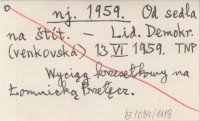 nj. 1959. Od sedla
na štít. – Lid. Demokr.
(venkovská) 13 VI 1959. TNP
Wyciąg krzesełkowy na
Łomnicką Przełęcz.